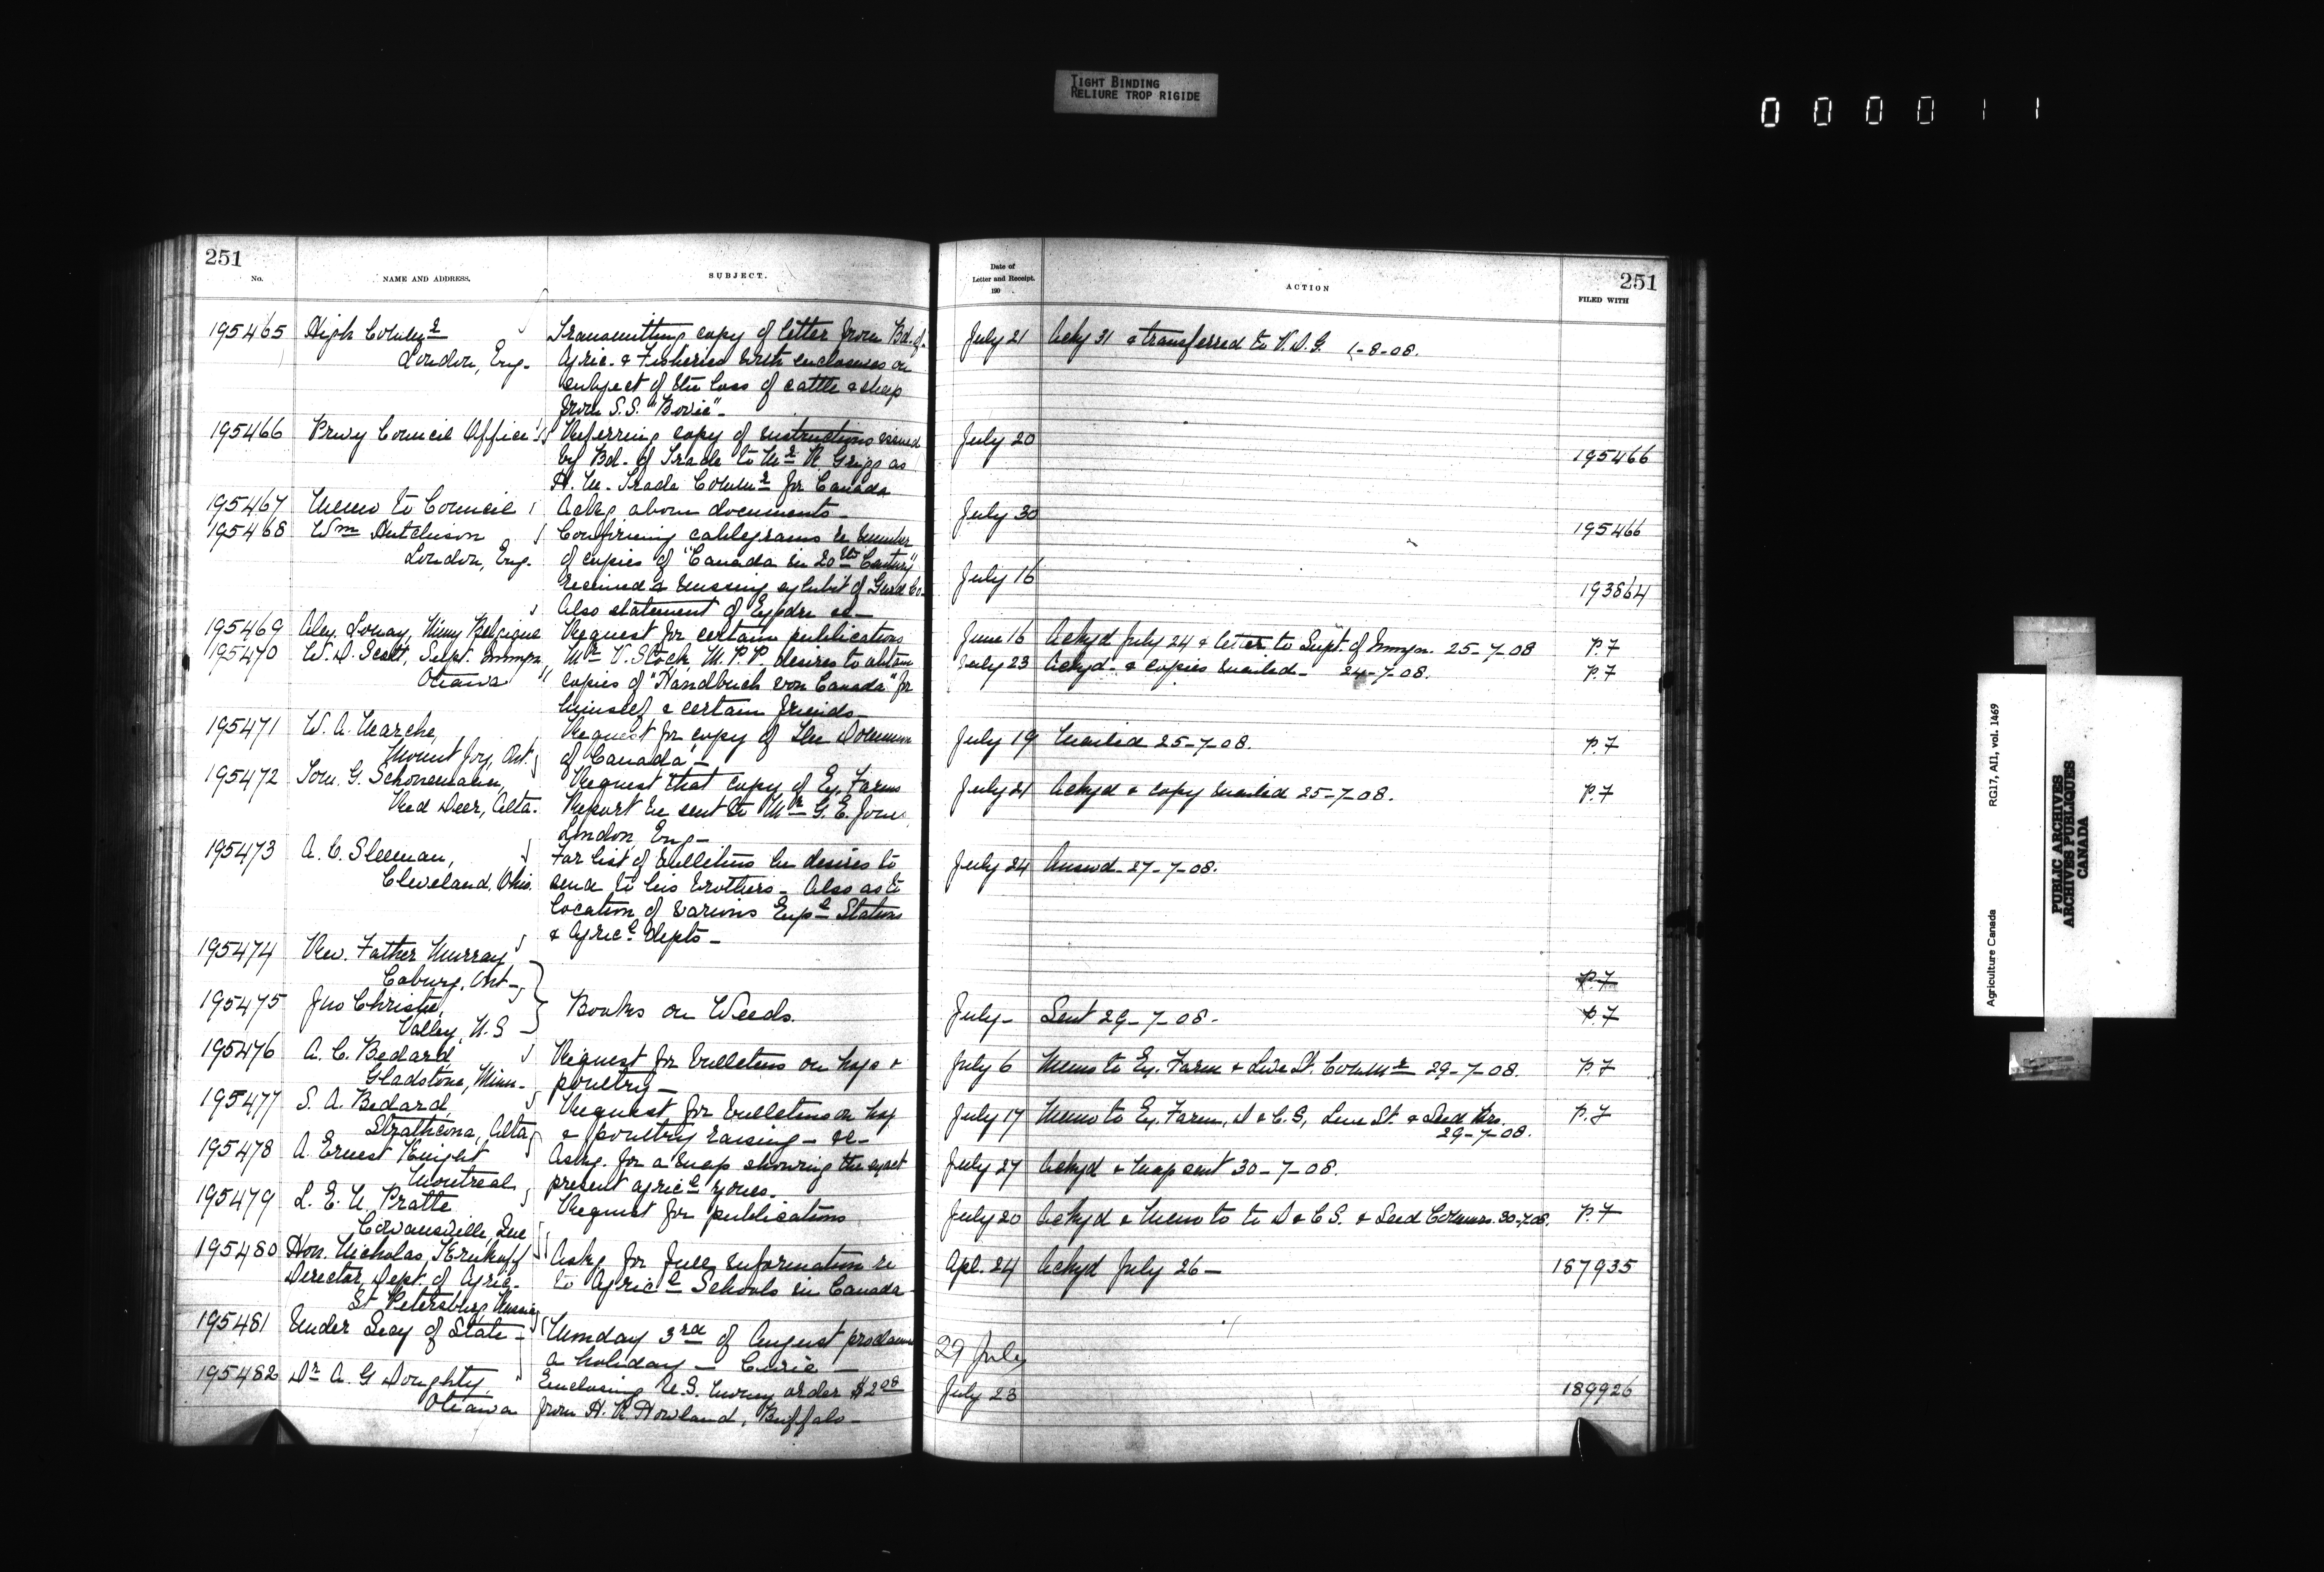 TIGHT BINDING
RELIURE TROP RIGIDE
000011
251
No.
NAME AND ADDRESS.
SUBJECT.
Date of
Letter and Receipt.
190
ACTION
251
FILED WITH
195465 High Commr Transmitting copy of letter from Bd. of July 21 Ackg 31 & transferred to V.D.G. 1-8-08.
London, Eng. Agric. & Fisheries with enclosures on
subject of the loss of cattle & sheep
from S.S. "Bovic"
195466 Privy Council Office Referring copy of instructions issued July 20
by Bd. of Trade to Mr R Grigg as 195466
H. M. Trade Commr for Canada
195467 Memo to Council Ackg above documents July 30
195468 Wm Hutchison Confirming cablegrams re number 195466
London, Eng. of copies of "Canada in 20th Century"
received & missing exhibit of Co. July 16 193864
Also statement of Expdre &c
195469 Alex. Lonay, Nimy Belgique Request for certain publications June 16 Ackgd July 24 & letter to Supt. of Immgn. 25-7-08 P.7
195470 W. D. Scott, Supt. Immgn, Mr V. Stock, M.P.P. desires to obtain July 23 Ackgd. & copies mailed 24-7-08. P.7
Ottawa copies of "Handbuch von Canada" for
himself & certain friends
195471 W. A. Request for copy of The Dominion July 19 Mailed 25-7-08. P.7
Mount Joy, Ont. of Canada
195472 Tom. G. Schonemann, Request that copy of Ex. Farms July 21 Ackgd & copy mailed 25-7-08. P.7
Red Deer, Alta. Report be sent to Mr G. E. Jones
London, Eng
195473 A. C. Sleeman, For list of bulletins he desires to July 24 Answd. 27-7-08.
Cleveland, Ohio. send to his brothers. Also as to
location of various Expl Stations
& Agricl Depts
195474 Rev. Father Murray
Coburg, Ont P.7
195475 Jno Christie, Books on Weeds. July Sent 29-7-08. P.7
Valley, N.S
195476 A. C. Bedard Request for bulletins on hogs & July 6 Memo to Ex. Farm & Live St. Commr 29-7-08. P.7
Gladstone, Minn. poultry
195477 S. A. Bedard, Request for bulletins on hog July 17 Memo to Ex. Farm, D & C.S, Live St. & Seed Brs. P.7
Strathcona, Alta, & poultry raising &c 29-7-08.
195478 A. Ernest Knight Askg. for a map showing the exact July 27 Ackgd & map sent 30-7-08.
Montreal present agricl zones.
195479 L. E. N. Pratte Request for publications July 20 Ackgd & Memo to to D & C S. & Seed Commrs. 30-7-08. P.7
Cowansville, Que
195480 Hon. Nicholas Krukoff Askg for full information re Apl. 24 Ackgd July 26 187935
Director, Dept. of Agric. to Agricl Schools in Canada
St Petersburg, Russia
195481 Under Secy of State Monday 3rd of August proclaimed 29 July
a holiday — Civic
195482 Dr A. G Doughty, Enclosing U.S. money order $2.08 July 23 189926
Ottawa from H. R Howland, Buffalo
Agriculture Canada RG17, AII, vol. 1469
PUBLIC ARCHIVES
ARCHIVES PUBLIQUES
CANADA